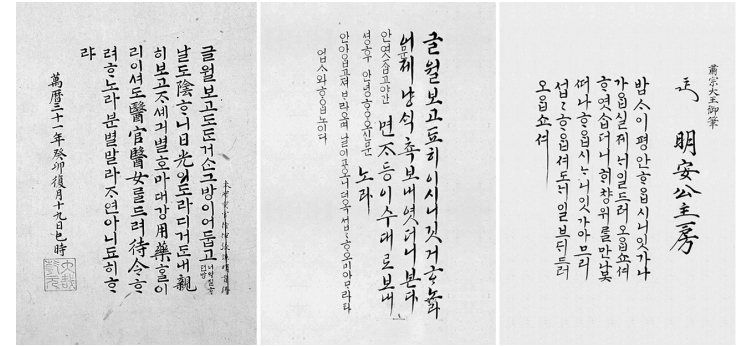 글월보고도ᄃᆞᆫ거ᄉᆞᆫ그방이어둡고
날도陰ᄒᆞ니日光이도라디거ᄃᆞᆫ내親
히보고ᄌᆞ셰긔별호마대강用藥ᄒᆞᆯ이
리이셔도醫官醫女ᄅᆞᆯ드려待令ᄒᆞ
려ᄒᆞ노라분별말라ᄌᆞ연아니됴히ᄒᆞ
랴
萬曆三十一年癸卯復月十九日巳時
글월보고됴히이시니깃거ᄒᆞ노라
어제냥식쵹보내엿더니본다
면ᄌᆞ등이수대로보내
노라
문
안엿ᄌᆞᆸ고야간
셩후안녕ᄒᆞᄋᆞ오신문
안아ᄋᆞᆸ고져ᄇᆞ라오며
업ᄉᆞ와ᄒᆞᄋᆞᆸ노이다
肅宗大王御筆
明安公主房
밤ᄉᆞ이평안ᄒᆞᄋᆞᆸ시니잇가나
가ᄋᆞᆸ실제ᄂᆡ일드러오ᄋᆞᆸ쇼셔
ᄒᆞ엿ᄉᆞᆸ더니ᄒᆡ창위ᄅᆞᆯ만나못
떠나ᄒᆞᄋᆞᆸ시ᄂᆞ니잇가아므리
섭섭ᄒᆞᄋᆞᆸ셔도ᄂᆡ일브ᄃᆡ드러
오ᄋᆞᆸ쇼셔